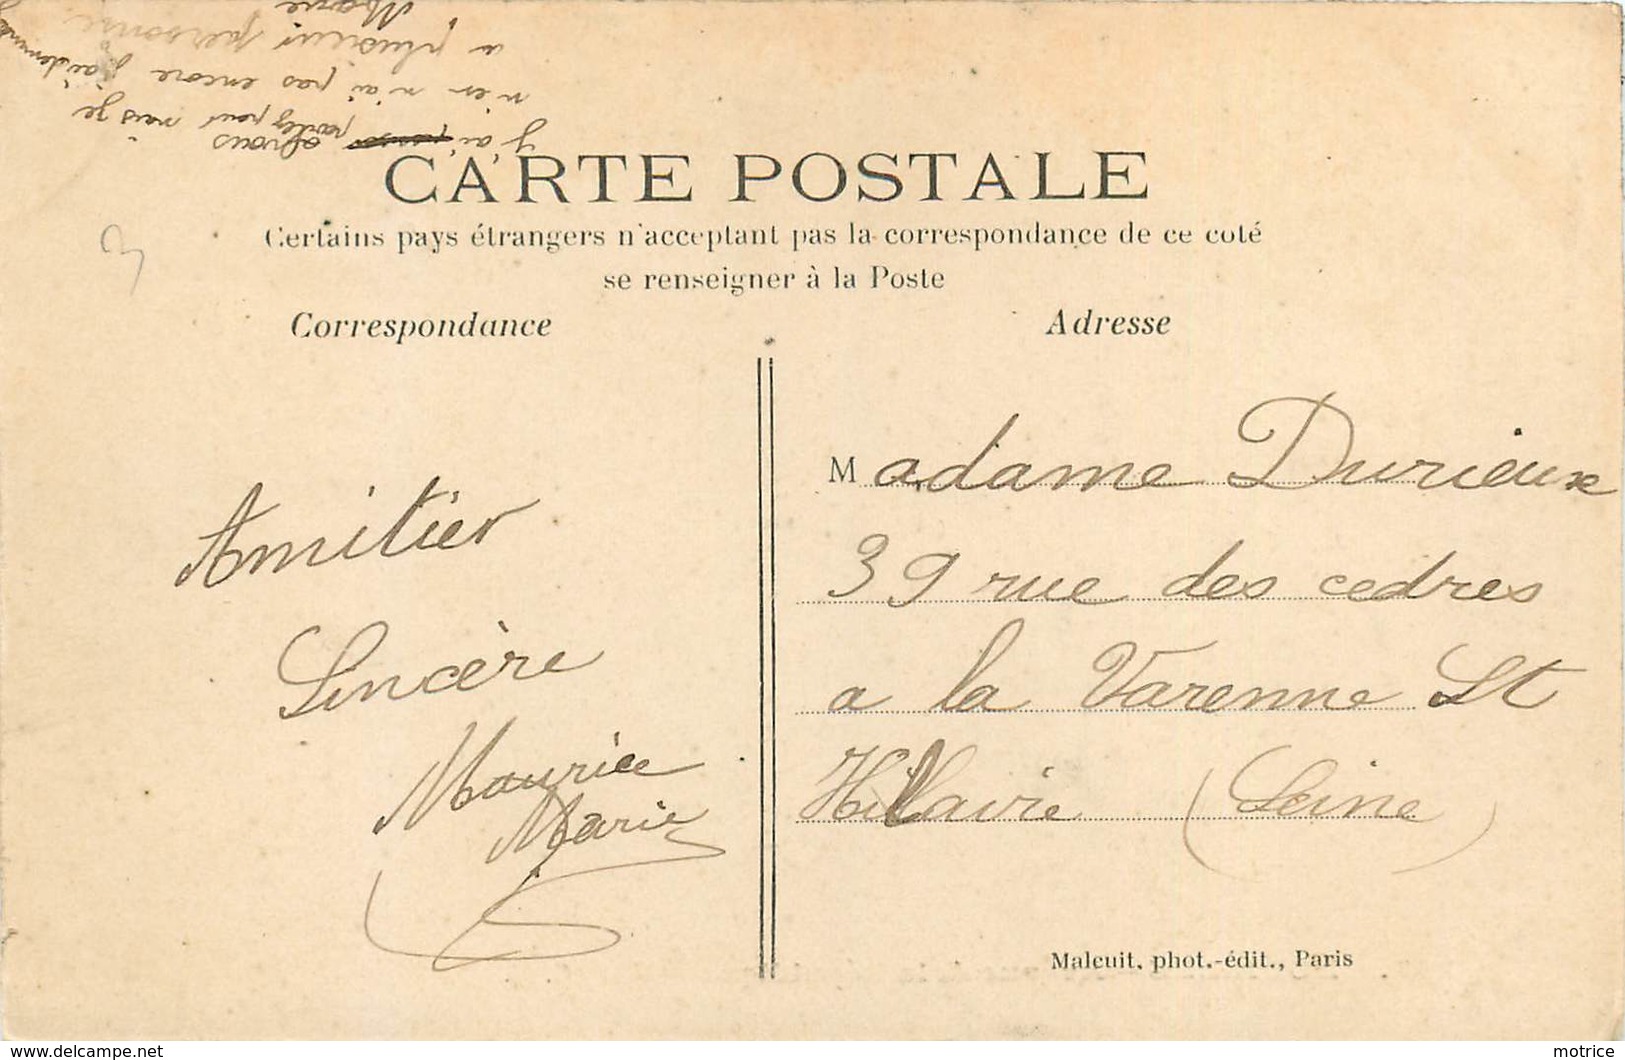 J'ai parlez pour vous mais je
n'en n'ai pas encore j'ai demandé
a plusieur personne
Marie
CARTE POSTALE
Certains pays étrangers n'acceptant pas la correspondance de ce coté
se renseigner à la Poste
3
Correspondance
Adresse
Amitier
Sincère
Maurice
Marie
Madame Durieux
39 rue des cedres
a la Varenne St
Hilaire (Seine)
Malcuit, phot.-édit., Paris
www.delcampe.net
motrice